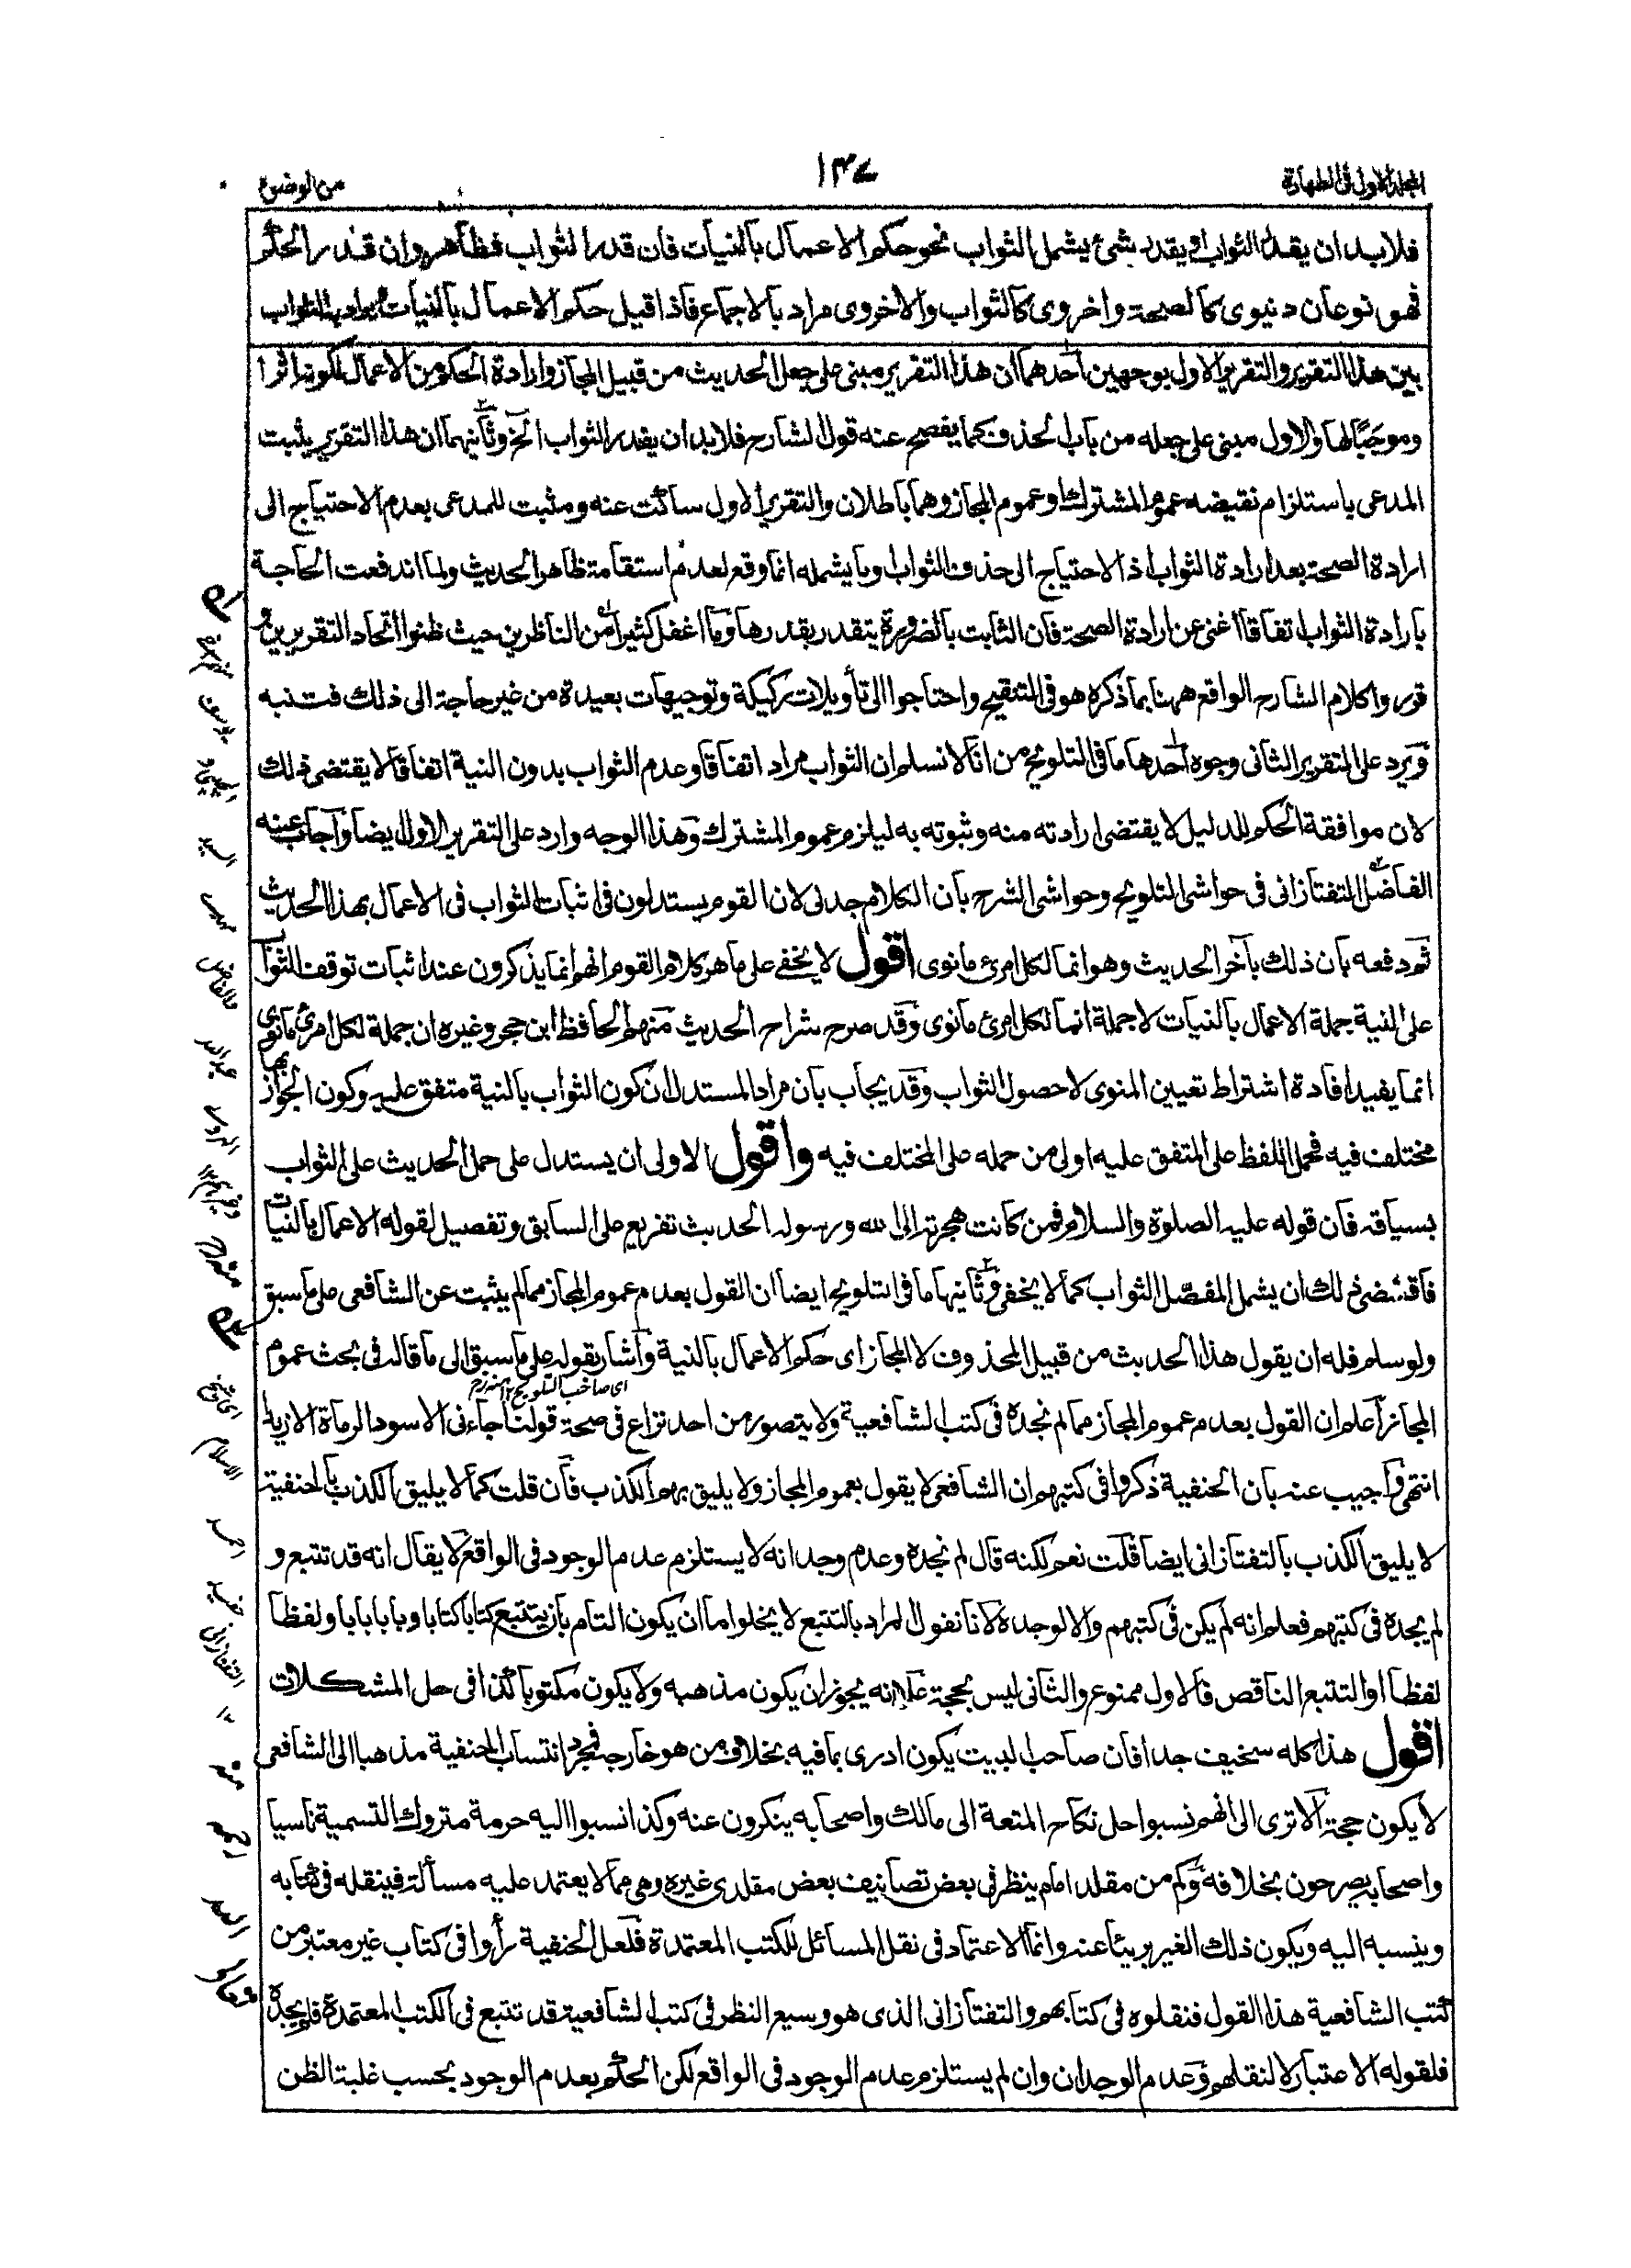 المجلد الاول فى الطهارة
١٤٧
من الوضوء
فلابد ان يقدر الثواب او يقدر شئ يشمل الثواب نحو حكم الاعمال بالنيات فان قدر الثواب فظاهر وان قدر الحكم
فهو نوعان دنيوى كالصحة واخروى كالثواب والاخروى مراد بالاجماع فاذا قيل حكم الاعمال بالنيات ويراد به الثواب
بين هذا التقرير والتقرير الاول بوجهين احدهما ان هذا التقرير مبنى على جعل الحديث من قبيل المجاز وارادة الحكم من الاعمال لكونه اثرا
وموجبًا لها والاول مبنى على جعله من باب الحذف كما يفصح عنه قول الشارح فلابد ان يقدر الثواب الخ وثانيهما ان هذا التقرير يثبت
المدعى باستلزام نقيضه عموم المشترك او عموم المجاز وهما باطلان والتقرير الاول ساكت عنه ومثبت للمدعى بعدم الاحتياج الى
ارادة الصحة بعد ارادة الثواب اذ الاحتياج الى حذف الثواب وما يشمله انما وقع لعدم استقامة ظاهر الحديث ولما اندفعت الحاجة
بارادة الثواب اتفاقا اغنى عن ارادة الصحة فان الثابت بالضرورة يتقدر بقدرها وما اغفل كثيرا من الناظرين حيث ظنوا اتحاد التقريرين و
قرروا كلام الشارح الواقع ههنا بما ذكره هو فى التنقيح واحتاجوا الى تأويلات ركيكة وتوجيهات بعيدة من غير حاجة الى ذلك فتنبه
ويرد على التقرير الثانى وجوه احدها ما فى التلويح من انا لا نسلم ان الثواب مراد اتفاقا وعدم الثواب بدون النية اتفاقا لا يقتضى ذلك
لان موافقة الحكم للدليل لا يقتضى ارادته منه وثبوته به ليلزم عموم المشترك وهذا الوجه وارد على التقرير الاول ايضا واجاب عنه
الفاضل التفتازانى فى حواشى التلويح وحواشى الشرح بان الكلام جدلى لان القوم يستدلون فى اثبات الثواب فى الاعمال بهذا الحديث
ثم دفعه بان ذلك بآخر الحديث وهو انما لكل امرئ مانوى اقول لا يخفى على ماهر كلام القوم انهم انما يذكرون عند اثبات توقف الثواب
على النية جملة الاعمال بالنيات لا جملة انما لكل امرئ مانوى وقد صرح شراح الحديث منهم الحافظ ابن حجر وغيره ان جملة لكل امرئ مانوى
انما يفيد افادة اشتراط تعيين المنوى لا حصول الثواب وقد يجاب بان مراد المستدل ان كون الثواب بالنية متفق عليه وكون الجواز بها
مختلف فيه فحمل اللفظ على المتفق عليه اولى من حمله على المختلف فيه واقول الاولى ان يستدل على حمل الحديث على الثواب
بسياقه فان قوله عليه الصلوة والسلام فمن كانت هجرته الى الله ورسوله الحديث تفريع على السابق وتفصيل لقوله الاعمال بالنيات
فاقتضى ذلك ان يشمل المفصل الثواب كما لا يخفى وثانيها ما فى التلويح ايضا ان القول بعدم عموم المجاز مما لم يثبت عن الشافعى على ما سبق
ولو سلم فله ان يقول هذا الحديث من قبيل المحذوف لا المجاز اى حكم الاعمال بالنية واشار بقوله على ما سبق الى ما قاله فى بحث عموم
اى صاحب التلويح ١٢ منه رح
المجاز اعلم ان القول بعدم عموم المجاز مما لم نجده فى كتب الشافعية ولا يتصور من احد نزاع فى صحة قولنا جاءنى الاسود الرماة الا زيدا
انتهى واجيب عنه بان الحنفية ذكروا فى كتبهم ان الشافعى لا يقول بعموم المجاز ولا يليق بهم الكذب فان قلت كما لا يليق الكذب بالحنفية
لا يليق الكذب بالتفتازانى ايضا قلت نعم لكنه قال لم نجده وعدم وجدانه لا يستلزم عدم الوجود فى الواقع لا يقال انه قد تتبع و
لم يجده فى كتبهم فعلم انه لم يكن فى كتبهم والا لوجده لانا نقول المراد بالتتبع لا يخلو اما ان يكون التام بان يتتبع كتابا كتابا وبابا بابا ولفظا
لفظا او التتبع الناقص فالاول ممنوع والثانى ليس بحجة على انه يجوز ان يكون مذهبه ولا يكون مكتوبا كذا فى حل المشكلات
اقول هذا كله سخيف جدا فان صاحب البيت يكون ادرى بما فيه بخلاف من هو خارجه فمجرد انتساب الحنفية مذهبا الى الشافعى
لا يكون حجة الا ترى الى انهم نسبوا حل نكاح المتعة الى مالك واصحابه ينكرون عنه وكذا نسبوا اليه حرمة متروك التسمية ناسيا
واصحابه يصرحون بخلافه وكم من مقلد امام ينظر فى بعض تصانيف بعض مقلدى غيره وهى مما لا يعتمد عليه مسألة فينقله فى كتابه
وينسبه اليه ويكون ذلك الغير بريئا عنه وانما الاعتماد فى نقل المسائل للكتب المعتمدة فلعل الحنفية رأوا فى كتاب غير معتبر من
كتب الشافعية هذا القول فنقلوه فى كتابهم والتفتازانى الذى هو وسيع النظر فى كتب الشافعية قد تتبع فى الكتب المعتمدة فلم يجده
فلقوله الاعتبار لا لنقلهم وعدم الوجدان وان لم يستلزم عدم الوجود فى الواقع لكن الحكم بعدم الوجود بحسب غلبة الظن